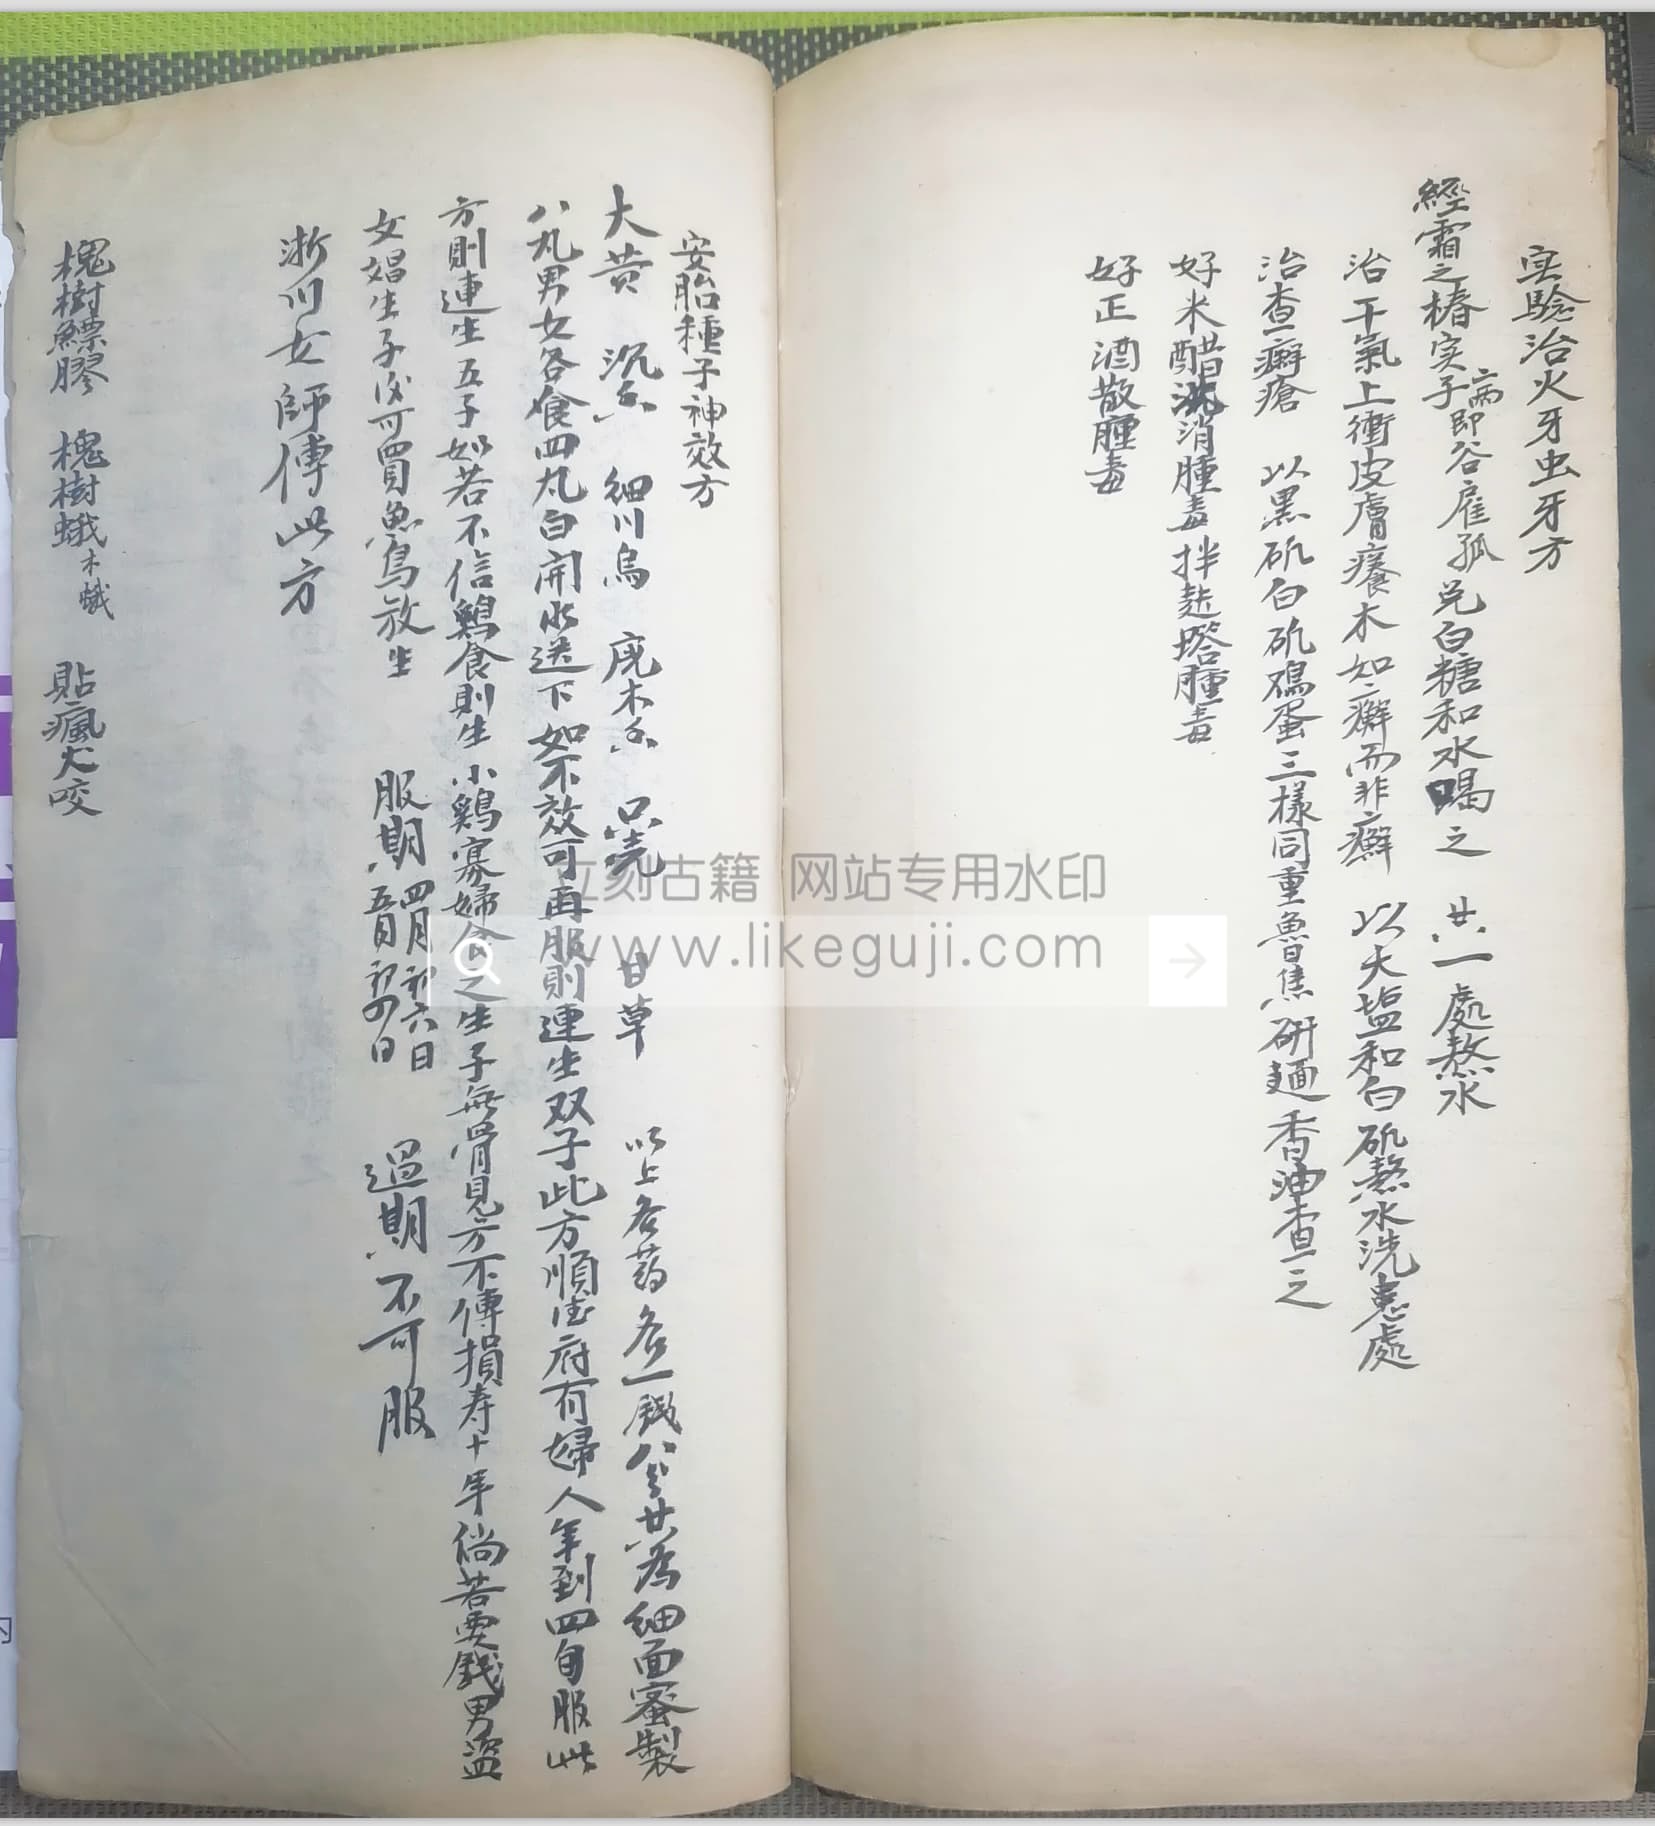 实驗治火牙虫牙方
經霜之椿实子 病即谷雇孤 兑白糖和水喝之 共一處熬水
治干氣上衝皮膚癢木如癬而非癬 以大塩和白矾熬水洗患處
治查癬瘡 以黑矾白矾鴻蛋三樣同重魯焦研麵香油查之
好米醋洗消腫毒拌麸塔腫毒
好正酒散腫毒
安胎種子神效方
大黄 沉香 細川烏 廣木香 只壳 甘草 以上各药各一錢八分共为細面蜜製
八丸男女各食四丸白開水送下如不效可再服則連生双子此方順德府有婦人年到四旬服此
方則連生五子如若不信鷄食則生小鷄寡婦食之生子無骨見方不傳損寿十年倘若要錢男盗
女娼生子後可買魚鳥放生 服期四月初六日 五月初四日 過期不可服
浙川女師傳此方
槐樹鰾膠 槐樹蛾木蠘 貼瘋犬咬
立刻古籍 网站专用水印
www.likeguji.com